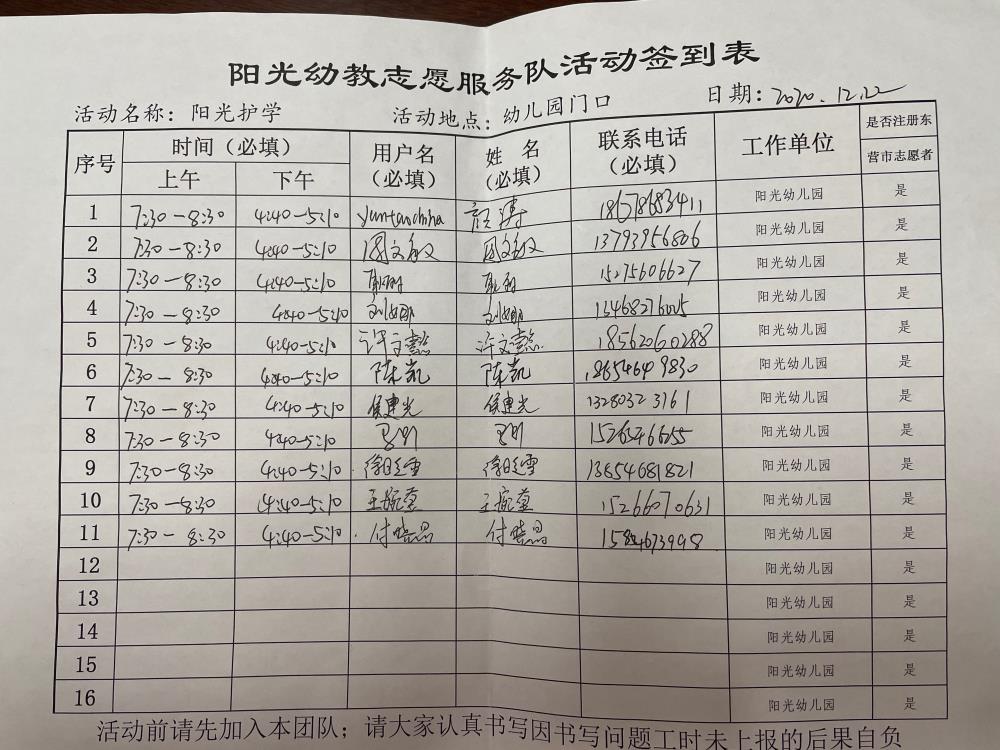 阳光幼教志愿服务队活动签到表
活动名称：阳光护学 活动地点：幼儿园门口 日期：2020.12.22
序号 时间（必填） 用户名（必填） 姓名（必填） 联系电话（必填） 工作单位 是否注册东营市志愿者
上午 下午
1 7:30-8:30 4:40-5:10 yuntaochina 颜涛 18678683411 阳光幼儿园 是
2 7:30-8:30 4:40-5:10 周文敏 周文敏 13793956806 阳光幼儿园 是
3 7:30-8:30 4:40-5:10 15275606627 阳光幼儿园 是
4 7:30-8:30 4:40-5:10 刘娜 刘娜 阳光幼儿园 是
5 7:30-8:30 4:40-5:10 许文懿 许文懿 18562060288 阳光幼儿园 是
6 7:30-8:30 4:40-5:10 陈凯 陈凯 18654649830 阳光幼儿园 是
7 7:30-8:30 4:40-5:10 侯建光 侯建光 13280323161 阳光幼儿园 是
8 7:30-8:30 4:40-5:10 阳光幼儿园 是
9 7:30-8:30 4:40-5:10 徐延雪 徐延雪 13654681821 阳光幼儿园 是
10 7:30-8:30 4:40-5:10 王 王 15266070631 阳光幼儿园 是
11 7:30-8:30 4:40-5:10 付晓 付晓 阳光幼儿园 是
12 阳光幼儿园 是
13 阳光幼儿园 是
14 阳光幼儿园 是
15 阳光幼儿园 是
16 阳光幼儿园 是
活动前请先加入本团队；请大家认真书写因书写问题工时未上报的后果自负